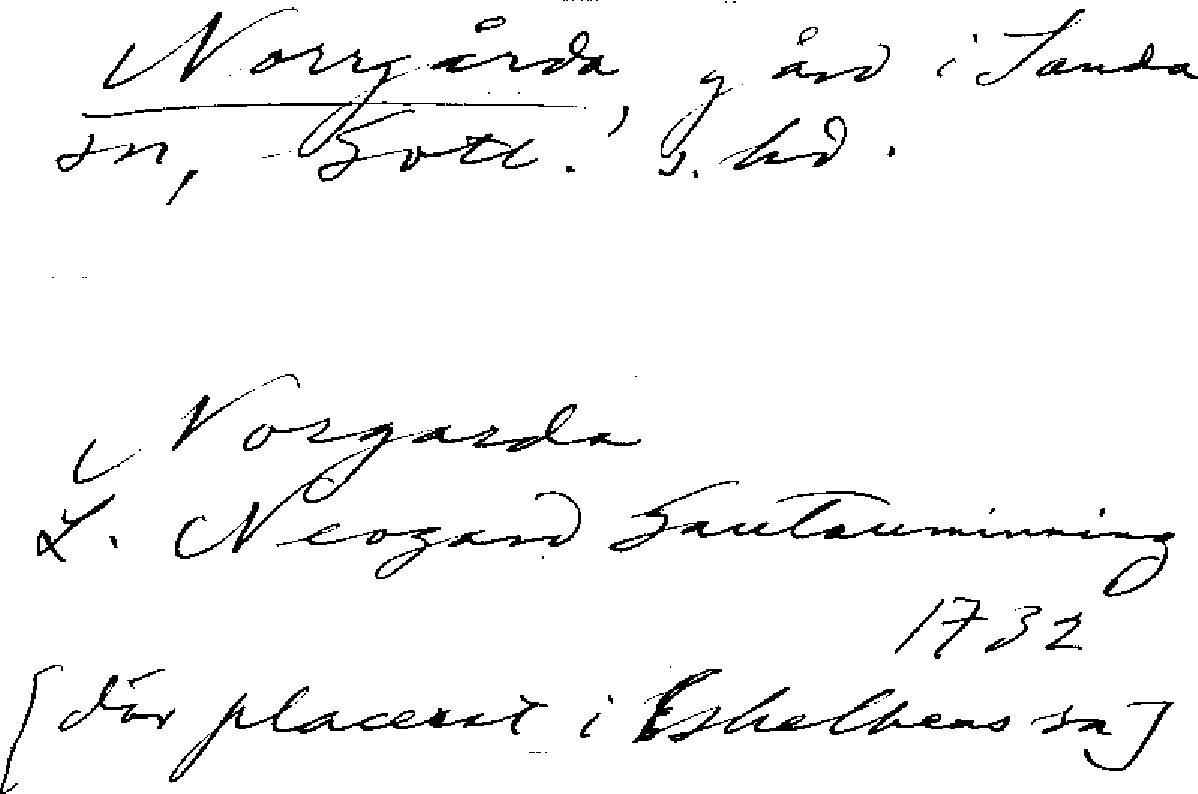 Norrgårda, gård i Sanda
sn, Gotl. s. hd.
Norgarda
L. Neogard Gautauminning
1732
[där placerat i Eskelhems sn]